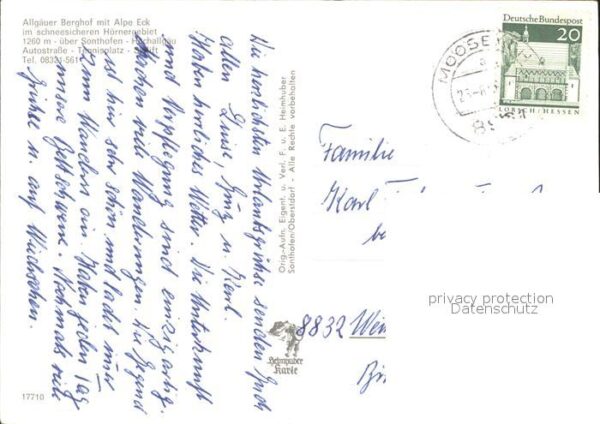 Allgäuer Berghof mit Alpe Eck
im schneesicheren Hörnergebiet
1260 m - über Sonthofen - Hochallgäu
Autostraße - Tennisplatz - Skilift
Tel. 08321-561
Die herzlichsten Urlaubsgrüße senden Euch
allen Luise, u. Karl.
Haben herrliches Wetter. Die Unterkunft
und Verpflegung sind einzigartig.
Machen viel Wanderungen. Die Gegend
ist hier sehr schön und ladet immer
zum Wandern ein. Haben jeden Tag
unsere Nochmals viele
Grüße u. auf Wiedersehen.
17710
Orig.-Aufn. Eigent. u. Verl. F. u. E. Heimhuber
Sonthofen/Oberstdorf - Alle Rechte vorbehalten
Heimhuber
Karte
MOOSE
Deutsche Bundespost
20
LORSCH/HESSEN
Familie
Karl
8832 Wei
privacy protection
Datenschutz